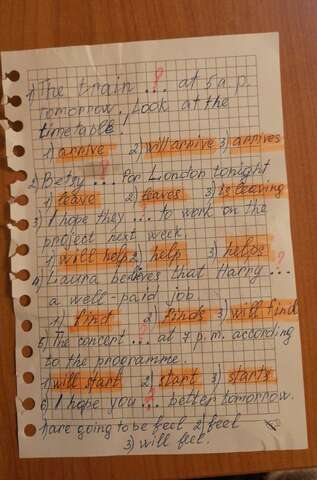 1) The train ...?... at 5 a. p.
tomorrow. Look at the
timetable!
1) arrive 2) will arrive 3) arrives
2) Betsy ...?... for London tonight
1) leave 2) leaves 3) is leaving
3) I hope they ... to work on the
project next week.
1) will help 2) help 3) helps
4) Laura believes that Harry ...?...
a well-paid job.
1) find 2) finds 3) will find
5) The concert ...?... at 7 p.m. according
to the programme.
1) will start 2) start 3) starts
6) I hope you ...?... better tomorrow.
1) are going to be feel 2) feel
3) will feel.